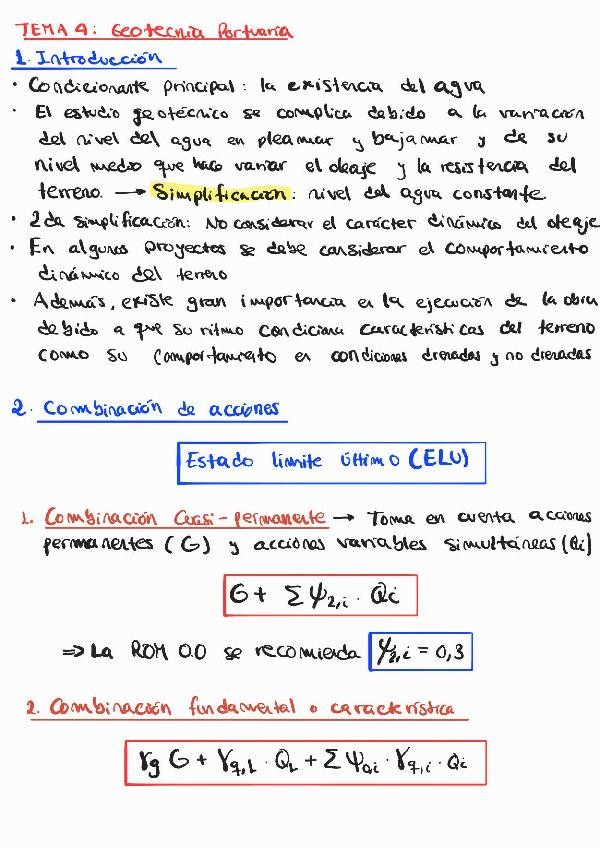 TEMA 4: Geotecnia Portuaria
1. Introducción
• Condicionante principal: la existencia del agua
• El estudio geotécnico se complica debido a la variación
del nivel del agua en pleamar y bajamar y de su
nivel medio que hace variar el oleaje y la resistencia del
terreno. → Simplificación: nivel del agua constante.
• 2da simplificación: No considerar el carácter dinámico del oleaje
• En algunos proyectos se debe considerar el comportamiento
dinámico del terreno
• Además, existe gran importancia en la ejecución de la obra
debido a que su ritmo condiciona características del terreno
como su comportamiento en condiciones drenadas y no drenadas
2. Combinación de acciones
Estado límite último (ELU)
1. Combinación Cuasi-permanente → Toma en cuenta acciones
permanentes (G) y acciones variables simultáneas (Qi)
G + Σ ψ2,i · Qi
⇒ La ROM 0.0 se recomienda ψ2,i = 0,3
2. Combinación fundamental o característica
γg G + γq,1 · Q1 + Σ ψ0,i · γq,i · Qi